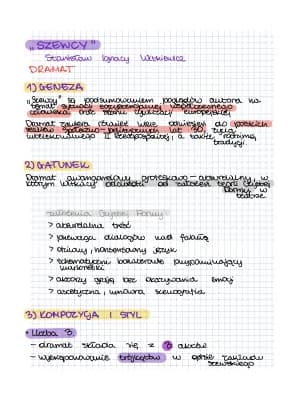 „SZEWCY"
Stanisław Ignacy Witkiewicz
DRAMAT
1) GENEZA
„Szewcy" są podsumowaniem poglądów autora na
temat sytuacji egzystencjalnej współczesnego
człowieka oraz stanu cywilizacji europejskiej
Dramat zawiera również wiele odniesień do polskich
realiów społeczno-politycznych lat 30. życia
II Rzeczpospolitej, a także rodzimej
tradycji.
2) GATUNEK
Dramat awangardowy groteskowo-absurdalny, w
którym widać odwołania od założeń teorii Czystej
Formy w
teatrze
założenia Czystej Formy
> absurdalna treść
> przewaga dialogów nad fabułą
> dziwny, język
> schematyczni bohaterowie przypominający
marionetki
> aktorzy grają bez okazywania emocji
> ascetyczna, umowna scenografia
3) KOMPOZYCJA I STYL
• Liczba 3
- dramat składa się z 3 aktów
- wyeksponowanie trójkątów w opisie zakładu
szewskiego